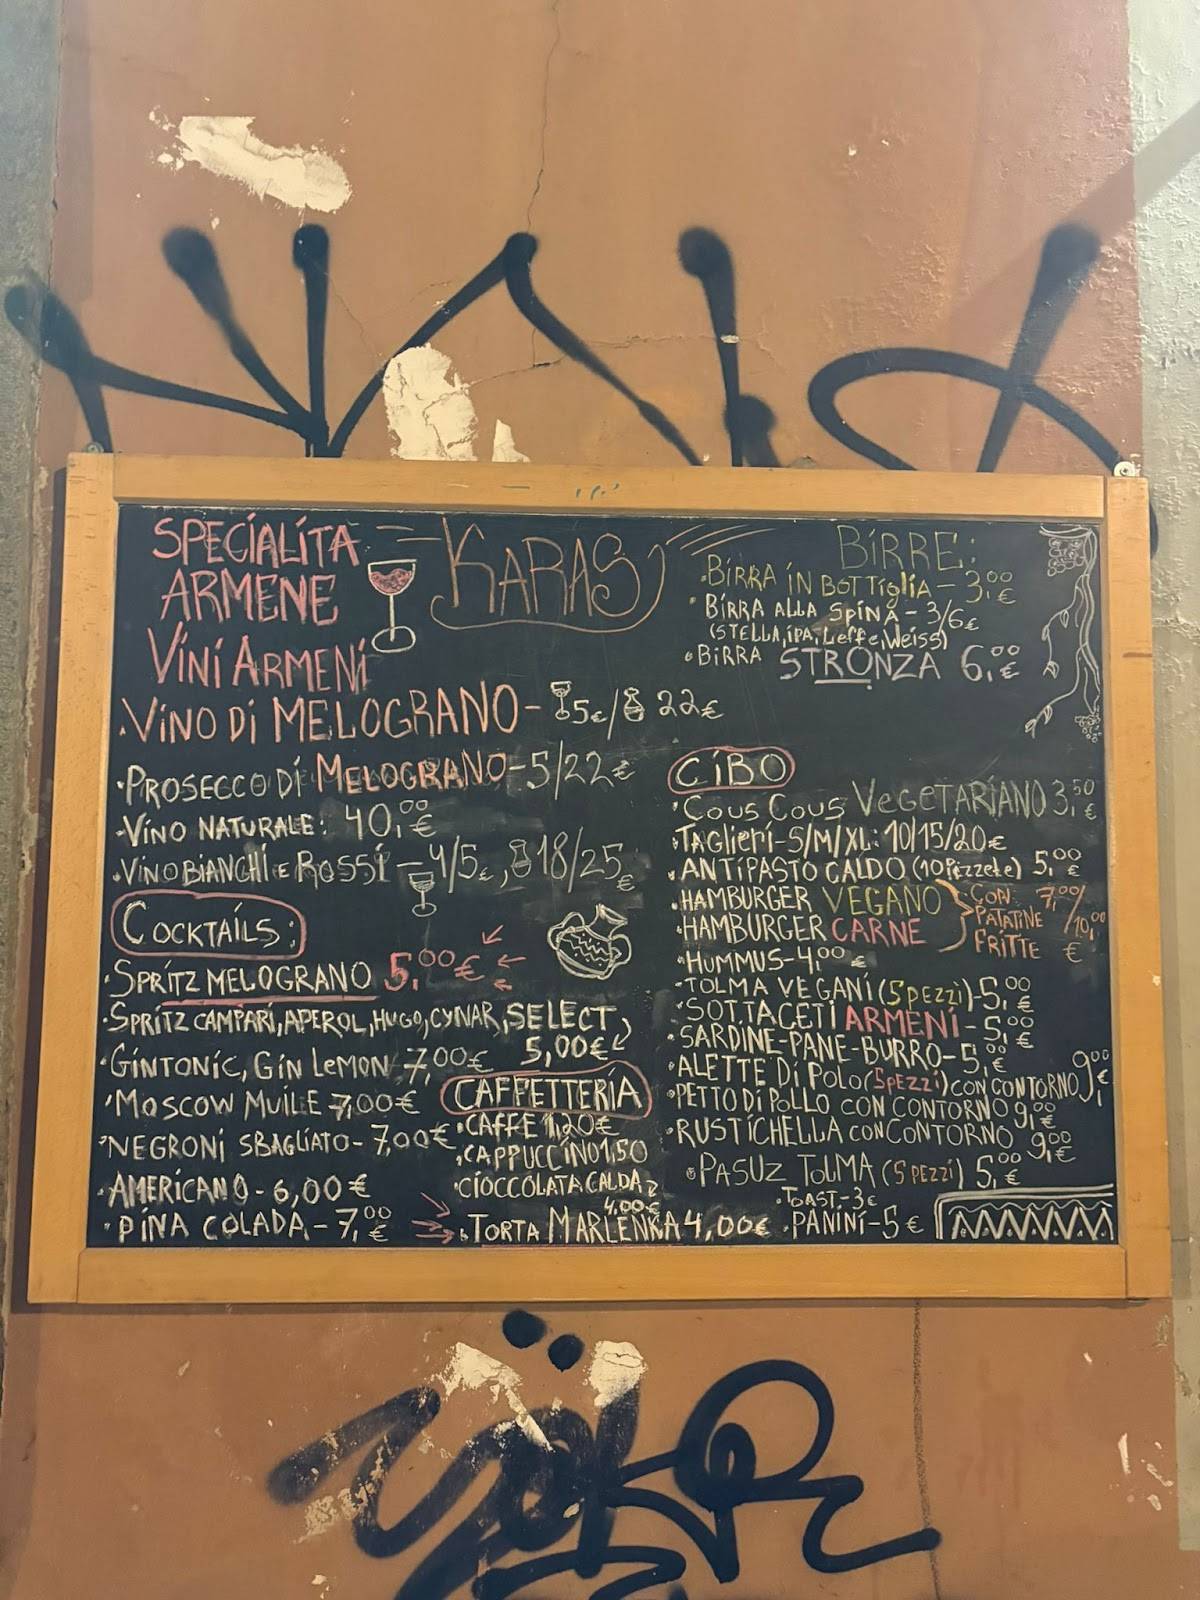 KARAS
SPECIALITA
ARMENE
VINI ARMENI
·VINO DI MELOGRANO - 5€/ 22€
·PROSECCO DI MELOGRANO-5/22€
·VINO NATURALE: 40,00€
·VINO BIANCHI E ROSSI - 4/5€, 18/25€
COCKTAILS:
·SPRITZ MELOGRANO 5,00€
·SPRITZ CAMPARI, APEROL, HUGO, CYNAR, SELECT
5,00€
·GINTONIC, GIN LEMON 7,00€
·MOSCOW MUILE 7,00€
·NEGRONI SBAGLIATO- 7,00€
·AMERICANO - 6,00€
·PINA COLADA - 7,00€
CAFFETTERIA
·CAFFE 1,20€
·CAPPUCCINO 1,50
·CIOCCOLATA CALDA
4,00€
·TORTA MARLENKA 4,00€
BIRRE:
·BIRRA IN BOTTIGLIA - 3,00€
·BIRRA ALLA SPINA - 3/6€
(STELLA, IPA, Leffe, Weiss)
·BIRRA STRONZA 6,00€
CIBO
·COUS COUS VEGETARIANO 3,50€
·TAGLIERI-S/M/XL: 10/15/20€
·ANTIPASTO CALDO (10 Pizzete) 5,00€
·HAMBURGER VEGANO
·HAMBURGER CARNE
CON PATATINE FRITTE
7,00/10,00€
·HUMMUS-4,00€
·TOLMA VEGANI (5 PEZZI)-5,00€
·SOTTACETI ARMENI - 5,00€
·SARDINE-PANE-BURRO-5,00€
·ALETTE DI POLO (5 PEZZI) CON CONTORNO 9,00€
·PETTO DI POLLO CON CONTORNO 9,00€
·RUSTICHELLA CON CONTORNO 9,00€
·PASUZ TOLMA (5 PEZZI) 5,00€
·TOAST-3€
·PANINI-5€